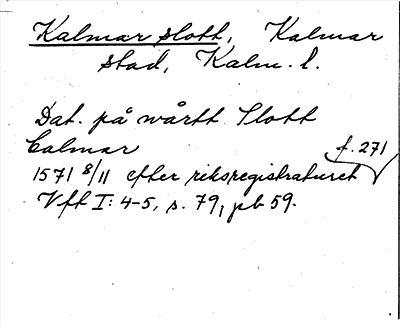 Kalmar slott, Kalmar
stad, Kalm. l.
Dat. på wårtt Slott
Calmar f. 271
1571 8/11 efter riksregistraturet
Vft I: 4-5, s. 79, pb 59.